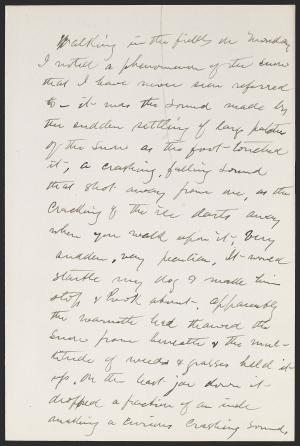 Walking in the fields on Monday
I noted a phenomenon of the snow
that I have never seen referred
to — it was the sound made by
the sudden settling of large patches
of the snow as the foot touched
it, a crashing, falling sound
that shot away from me, as the
cracking of the ice darts away
when you walk upon it. Very
sudden, very peculiar. It would
startle my dog & made him
stop & look about. Apparently
the warmth had thawed the
snow from beneath & the mul-
titude of weeds & grasses held it
up. On the least jar down it
dropped a fraction of an inch
making a curious crashing sound,